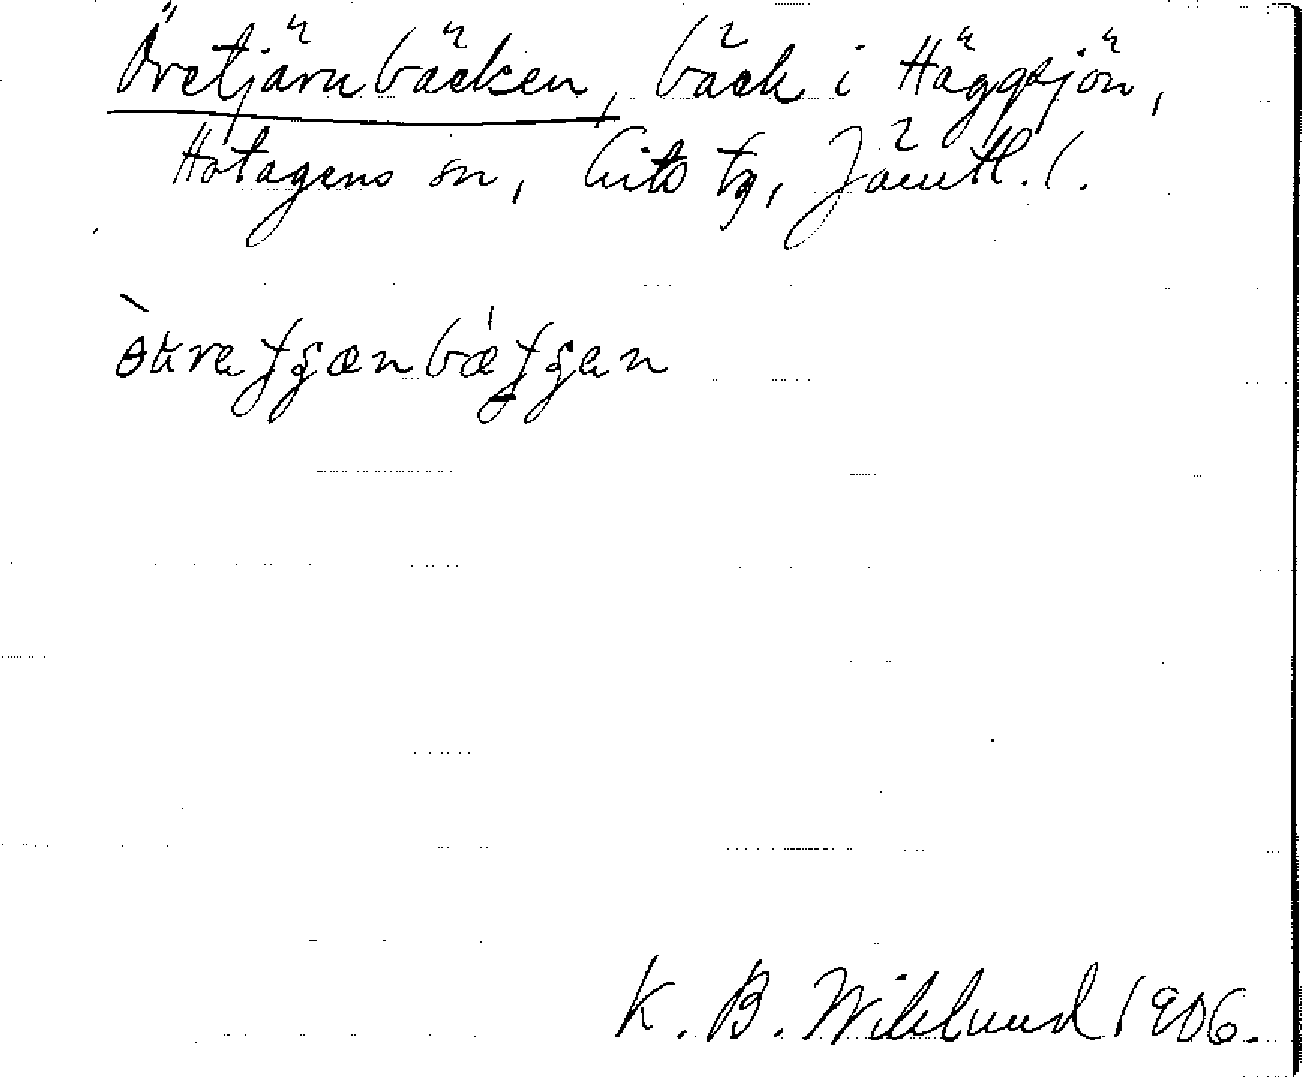 Övretjärnbäcken, bäck i Häggsjön,
Hotagens sn, Lits tg, Jämtl. l.
K. B. Wiklund 1906.